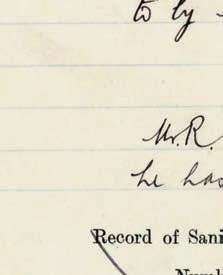 to by
Mr. R.
he has
Record of Sani
Numb